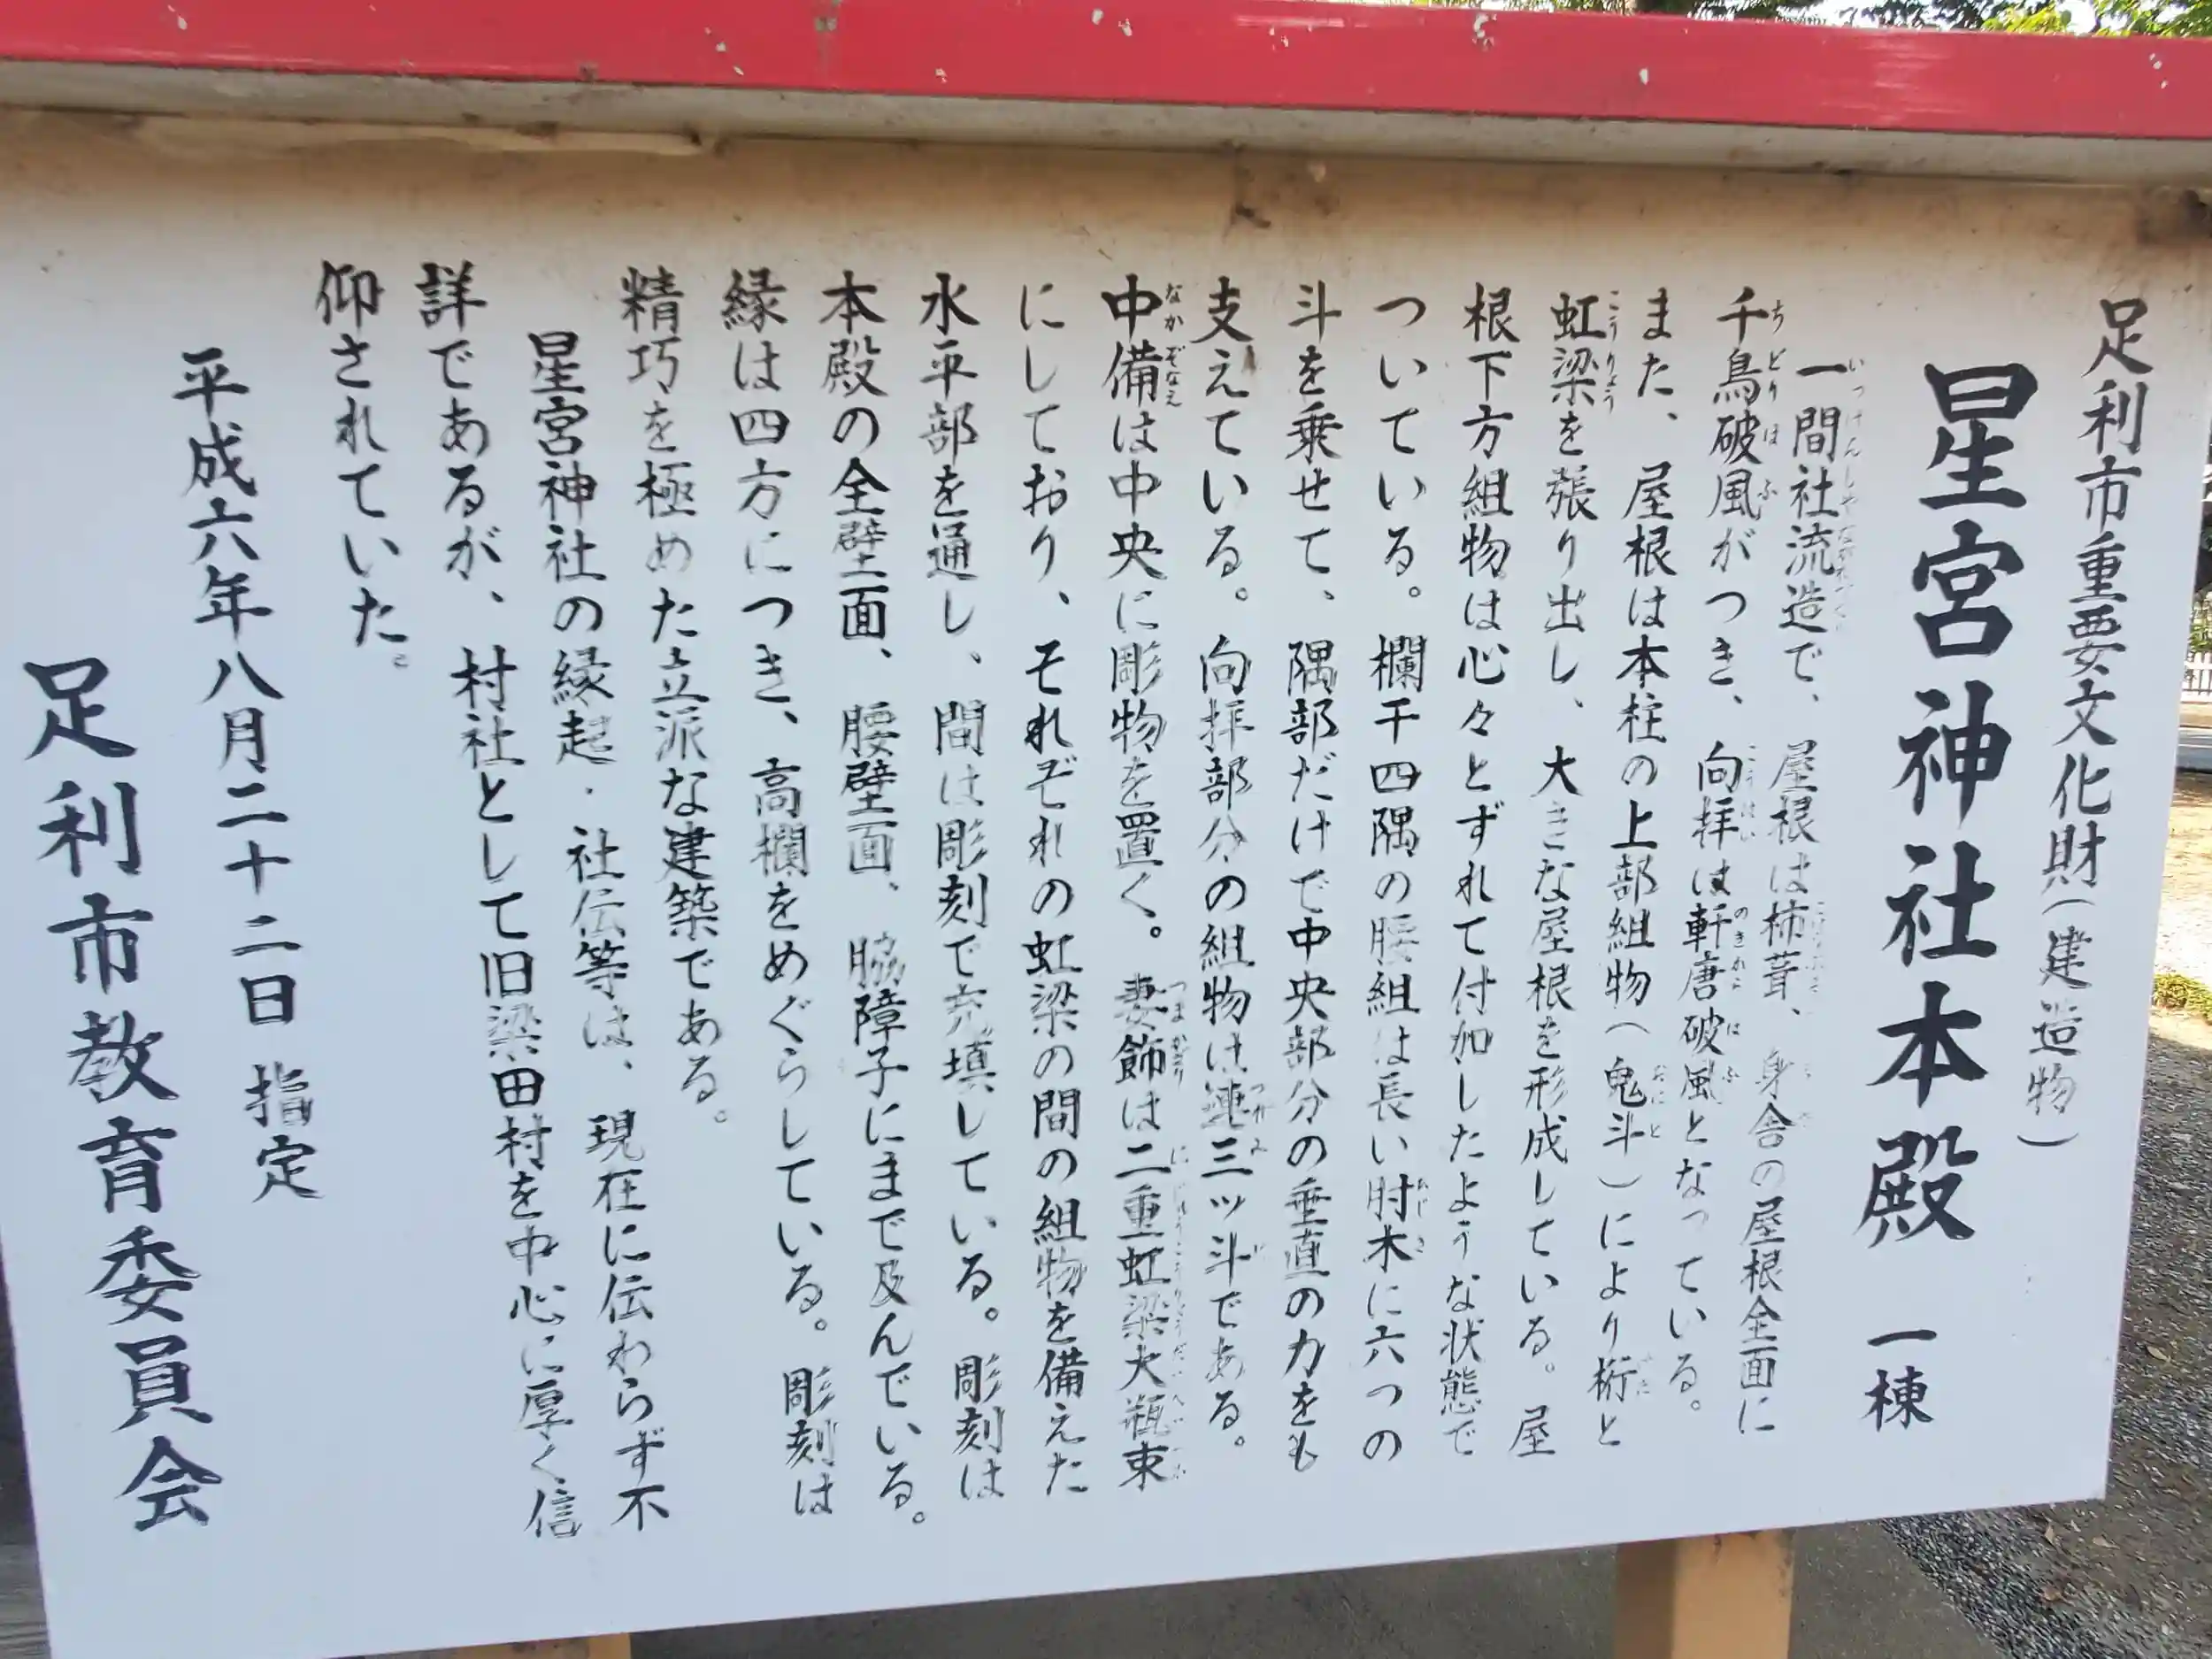 足利市重要文化財(建造物)
星宮神社本殿 一棟
一間社流造で、屋根は杮葺、身舎の屋根全面に
千鳥破風がつき、向拝は軒唐破風となっている。
また、屋根は本柱の上部組物(鬼斗)により桁と
虹梁を張り出し、大きな屋根を形成している。屋
根下方組物は心々とずれて付加したような状態で
ついている。欄干四隅の腰組は長い肘木に六つの
斗を乗せて、隅部だけで中央部分の垂直の力をも
支えている。向拝部分の組物は連三ッ斗である。
中備は中央に彫物を置く。妻飾は二重虹梁大瓶束
にしており、それぞれの虹梁の間の組物を備えた
水平部を通し、間は彫刻で充填している。彫刻は
本殿の全壁面、腰壁面、脇障子にまで及んでいる。
縁は四方につき、高欄をめぐらしている。彫刻は
精巧を極めた立派な建築である。
星宮神社の縁起・社伝等は、現在に伝わらず不
詳であるが、村社として旧梁田村を中心に厚く信
仰されていた。
平成六年八月二十二日 指定
足利市教育委員会